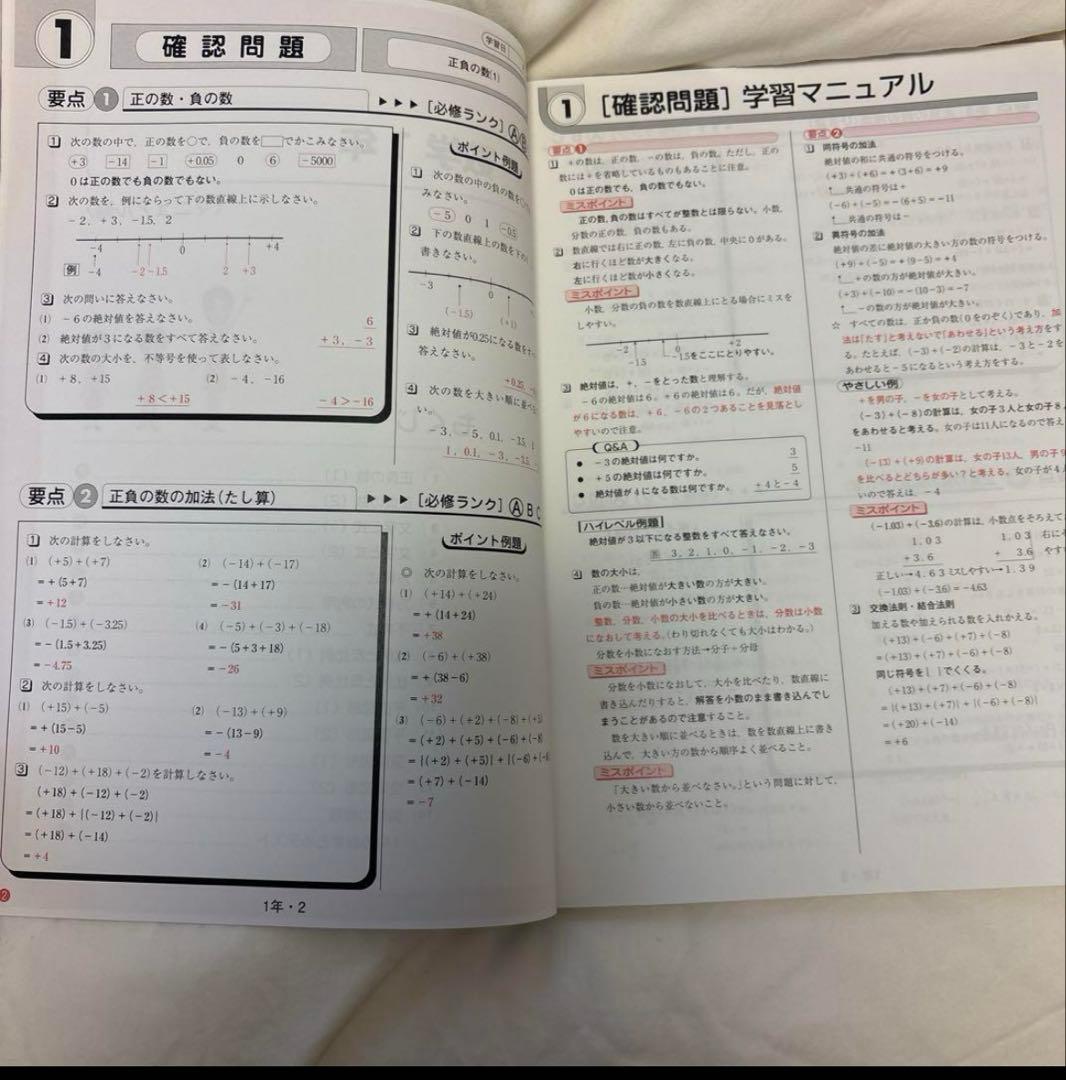 1
確認問題
学習日
正負の数(1)
要点 1 正の数・負の数
▶▶▶[必修ランク] A B
1 次の数の中で、正の数を○で、負の数を□でかこみなさい。
+3 -14 -1 +0.05 0 6 -5000
0は正の数でも負の数でもない。
2 次の数を、例にならって下の数直線上に示しなさい。
-2, +3, -1.5, 2
-4 0 +4
例 -4 -2 -1.5 2 +3
3 次の問いに答えなさい。
(1) -6の絶対値を答えなさい。 6
(2) 絶対値が3になる数をすべて答えなさい。 +3, -3
4 次の数の大小を、不等号を使って表しなさい。
(1) +8, +15 (2) -4, -16
+8<+15 -4>-16
ポイント例題
1 次の数の中の負の数を
みなさい。
-5 0 1 -0.5
2 下の数直線上の数を下の
書きなさい。
-3 0
(-1.5) (+1)
3 絶対値が0.25になる数を
答えなさい。
+0.25,
4 次の数を大きい順に並べ
い。
-3, -5, 0.1, -3.5, 1
1, 0.1, -3, -3.5,
要点 2 正負の数の加法(たし算)
▶▶▶[必修ランク] A B C
1 次の計算をしなさい。
(1) (+5)+(+7) (2) (-14)+(-17)
=+(5+7) =-(14+17)
=+12 =-31
(3) (-1.5)+(-3.25) (4) (-5)+(-3)+(-18)
=-(1.5+3.25) =-(5+3+18)
=-4.75 =-26
2 次の計算をしなさい。
(1) (+15)+(-5) (2) (-13)+(+9)
=+(15-5) =-(13-9)
=+10 =-4
3 (-12)+(+18)+(-2)を計算しなさい。
(+18)+(-12)+(-2)
=(+18)+{(-12)+(-2)}
=(+18)+(-14)
=+4
ポイント例題
◎ 次の計算をしなさい。
(1) (+14)+(+24)
=+(14+24)
=+38
(2) (-6)+(+38)
=+(38-6)
=+32
(3) (-6)+(+2)+(-8)+(+5)
=(+2)+(+5)+(-6)+(-8)
={(+2)+(+5)}+{(-6)+(-8
=(+7)+(-14)
=-7
2
1年・2
1 [確認問題] 学習マニュアル
要点1
1 +の数は、正の数、-の数は、負の数。ただし、正の
数には+を省略しているものもあることに注意。
0は正の数でも、負の数でもない。
ミスポイント
正の数、負の数はすべてが整数とは限らない。小数、
分数の正の数、負の数もある。
2 数直線では右に正の数、左に負の数、中央に0がある。
右に行くほど数が大きくなる。
左に行くほど数が小さくなる。
ミスポイント
小数、分数の負の数を数直線上にとる場合にミスを
しやすい。
-2 0 +2
-1.5 -1.5をここにとりやすい。
3 絶対値は、+、-をとった数と理解する。
-6の絶対値は6。+6の絶対値は6。だが、絶対値
が6になる数は、+6、-6の2つあることを見落とし
やすいので注意。
Q&A
● -3の絶対値は何ですか。 3
● +5の絶対値は何ですか。 5
● 絶対値が4になる数は何ですか。 +4と-4
ハイレベル例題
絶対値が3以下になる整数をすべて答えなさい。
答 3, 2, 1, 0, -1, -2, -3
4 数の大小は、
正の数…絶対値が大きい数の方が大きい。
負の数…絶対値が小さい数の方が大きい。
整数、分数、小数の大小を比べるときは、分数は小数
になおして考える。(わり切れなくても大小はわかる。)
分数を小数になおす方法→分子÷分母
ミスポイント
分数を小数になおして、大小を比べたり、数直線に
書き込んだりすると、解答を小数のまま書き込んでし
まうことがあるので注意すること。
数を大きい順に並べるときは、数を数直線上に書き
込んで、大きい方の数から順序よく並べること。
ミスポイント
「大きい数から並べなさい。」という問題に対して、
小さい数から並べないこと。
要点2
1 同符号の加法
絶対値の和に共通の符号をつける。
(+3)+(+6)=+(3+6)=+9
↑共通の符号は+
(-6)+(-5)=-(6+5)=-11
↑共通の符号は-
2 異符号の加法
絶対値の差に絶対値の大きい方の数の符号をつける。
(+9)+(-5)=+(9-5)=+4
↑+の数の方が絶対値が大きい。
(+3)+(-10)=-(10-3)=-7
↑-の数の方が絶対値が大きい。
☆ すべての数は、正か負の数(0をのぞく)であり、加
法は「たす」と考えないで「あわせる」という考え方をす
る。たとえば、(-3)+(-2)の計算は、-3と-2を
あわせると-5になるという考え方をする。
やさしい例
+を男の子、-を女の子として考える。
(-3)+(-8)の計算は、女の子3人と女の子8
をあわせると考える。女の子は11人になるので答え
-11
(-13)+(+9)の計算は、女の子13人、男の子9
を比べるとどちらが多い?と考える。女の子が4
いので答えは、-4
ミスポイント
(-1.03)+(-3.6)の計算は、小数点をそろえて
1.03 1.03 右に
+3.6 + 3.6 やす
正しい→4.63 ミスしやすい→1.39
(-1.03)+(-3.6)=-4.63
3 交換法則・結合法則
加える数や加えられる数を入れかえる。
(+13)+(-6)+(+7)+(-8)
=(+13)+(+7)+(-6)+(-8)
同じ符号を{ }でくくる。
(+13)+(+7)+(-6)+(-8)
={(+13)+(+7)}+{(-6)+(-8)}
=(+20)+(-14)
=+6